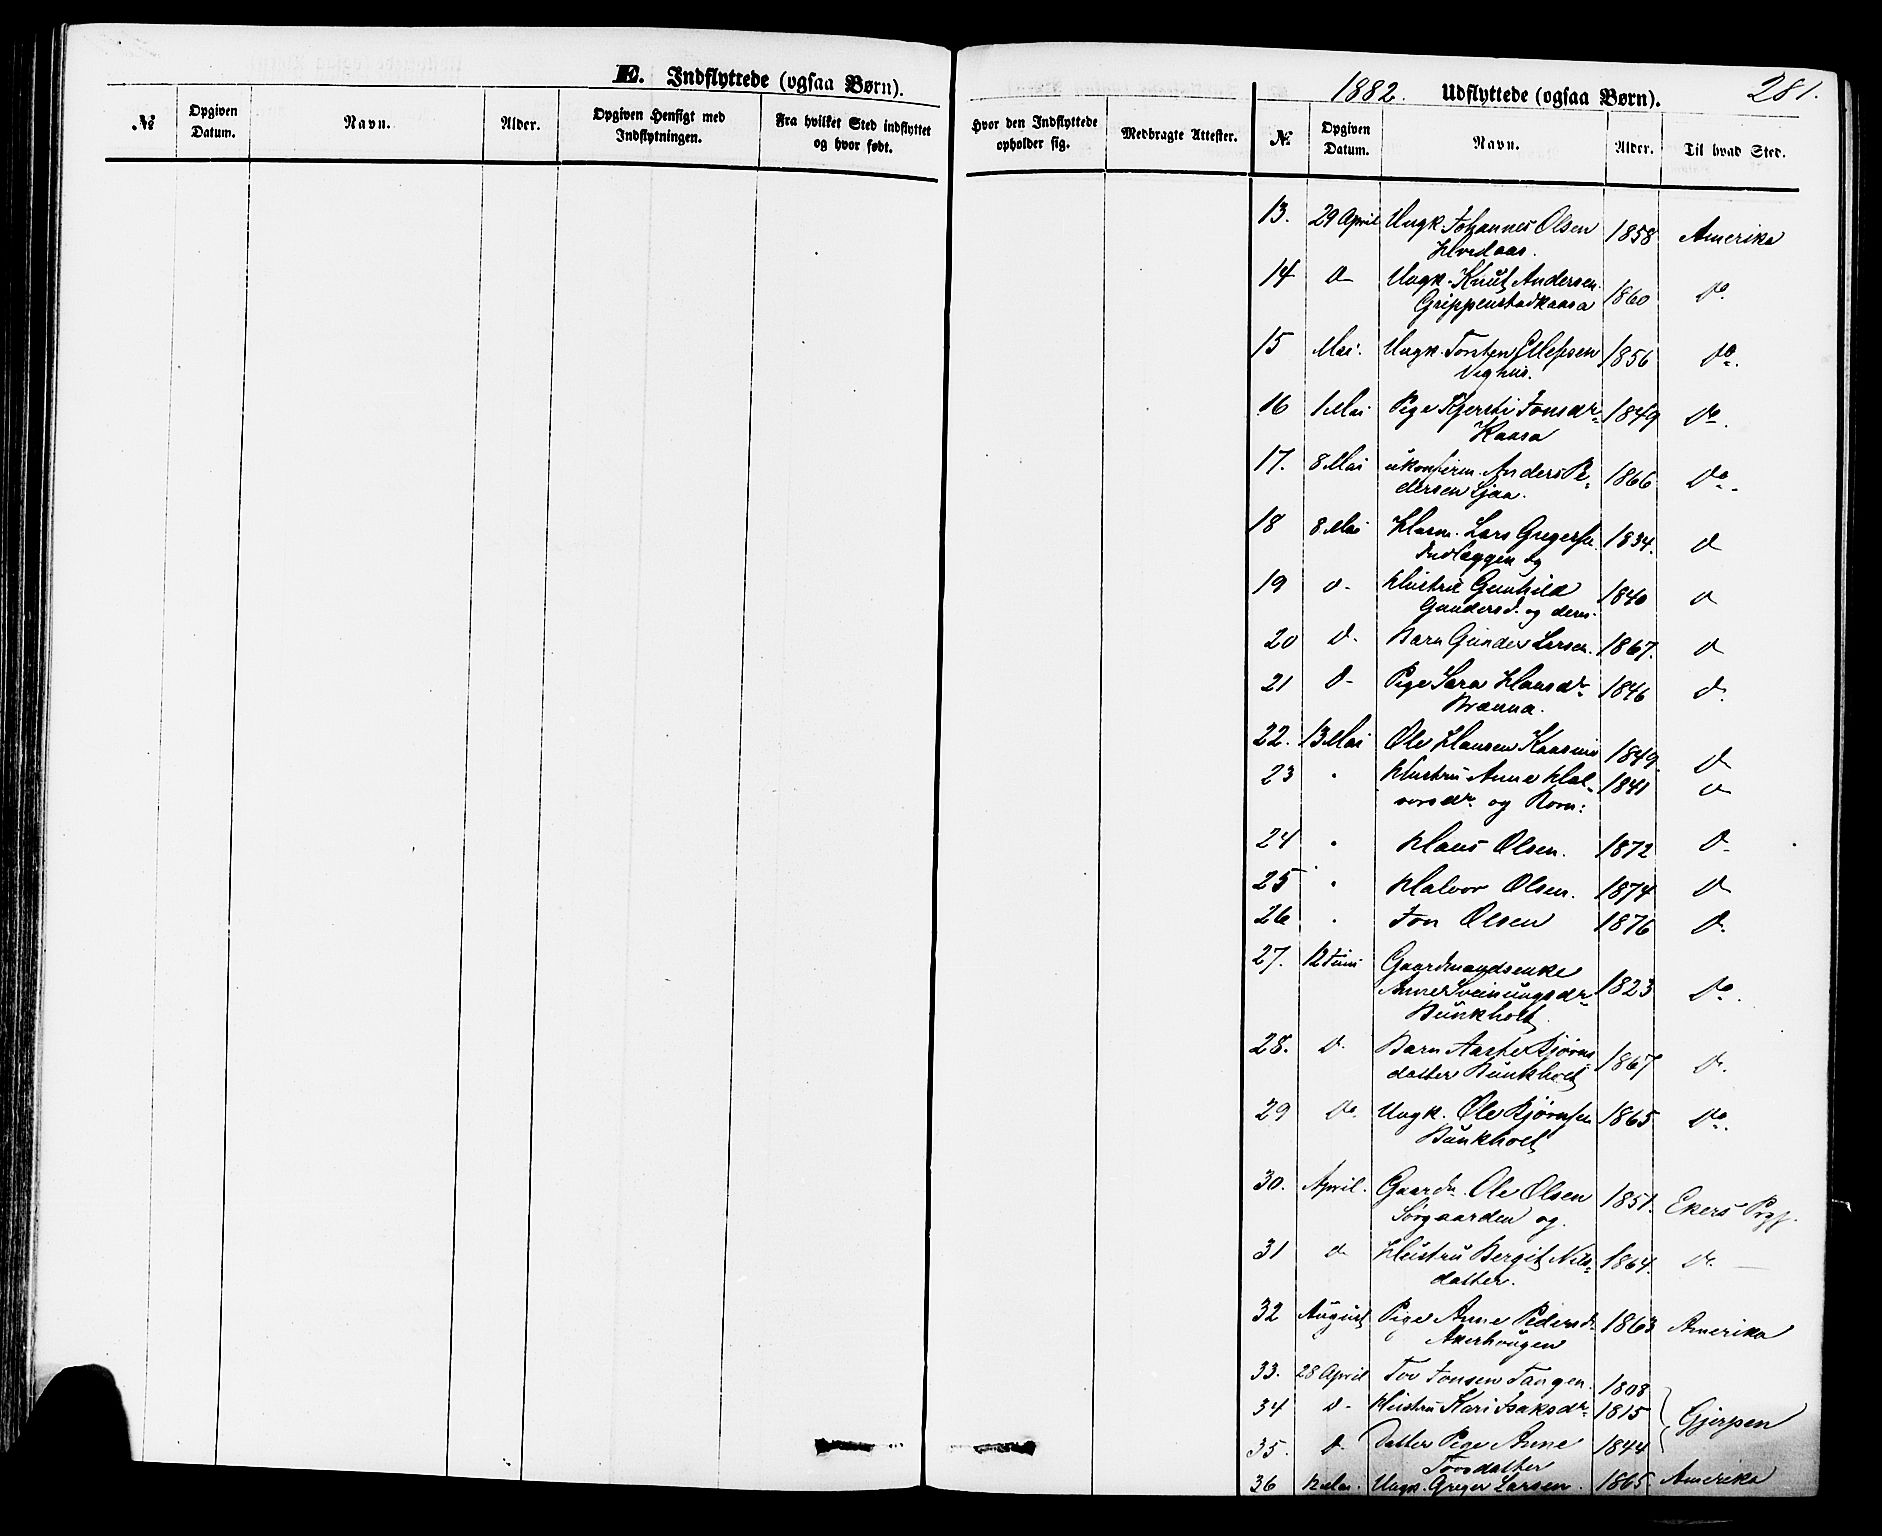 E. Indflyttede (ogsaa Børn).
№
Opgiven Datum.
Navn.
Alder.
Opgiven Hensigt med Indflytningen.
Fra hvilket Sted indflyttet og hvor født.
Hvor den Indflyttede opholder sig.
Medbragte Attester.
1882. Udflyttede (ogsaa Børn). 281.
№ Opgiven Datum. Navn. Alder. Til hvad Sted.
13. 29 April Ungk. Johannes Olsen 1858 Amerika
Hvedaas.
14 D Ungk. Knut Andersen 1860 Do
Grippenstadkaasa
15 Mai. Ungk. Torsten Ellefsen 1856 Do.
Veghus.
16 1 Mai Pige Kjersti Jonsdr 1849 Do.
Kaasa
17. 8 Mai ukonfirm. Anders Pe- 1866 Do.
dersen Ljaa.
18 8 Mai Husm. Lars Gregersen 1834. D
og
19 D- Hustru Gunhild 1840 D
Gundersd. og deres
20 D- Barn Gunder Larsen. 1867. D
21 D- Pige Sara Hansdr 1846 D.
Brænna.
22. 13 Mai Ole Hansen Kaasene 1849. D
23 " Hustru Anne Hal- 1841 D
vorsdr og Born:
24 " Hans Olsen. 1872 D.
25 " Halvor Olsen. 1874 D
26 " Jon Olsen 1876 D.
27. 12 Juni Gaardmandsenke
Anne Sveinungsdr 1823 Do.
Bunkholt
28. D- Barn Aaste Bjørns- 1867 D.
datter Bunkholt
29 Do. Ungk. Ole Bjørnsen 1865 Do.
Bunkholt
30. April. Gaardm. Ole Olsen 1851. Ekers Prgj.
Sørgaarden og
31 D Hustru Bergit Nils- 1864. D.
datter.
32 August Pige Anne Pedersdr 1863 Amerika
Akerhougen
33. 28 April Tov Jonsen Tangen. 1808
34 D- Hustru Kari Isaksdr 1815 Gjerpen
35. D. Datter Pige Anne 1844
Tovsdatter
36 12 Mai. Ungk. Greger Larsen. 1865. Amerika